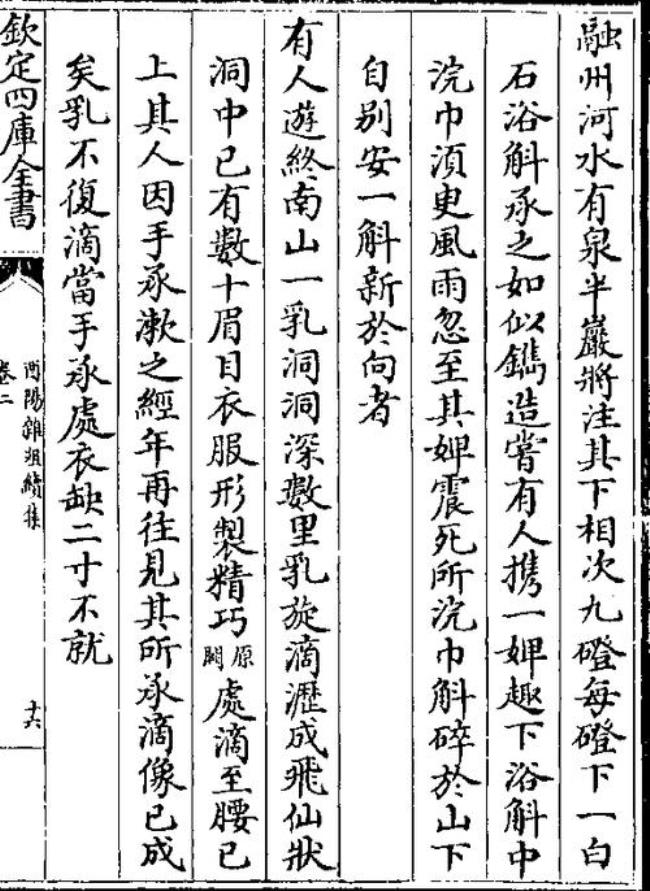 融州河水有泉半巖將注其下相次九磴每磴下一白
石浴斛承之如似鐫造嘗有人攜一婢趣下浴斛中
浣巾須臾風雨忽至其婢震死所浣巾斛碎於山下
自别安一斛新於向者
有人遊終南山一乳洞洞深數里乳旋滴瀝成飛仙狀
洞中已有數十眉目衣服形製精巧原闕處滴至腰已
上其人因手承漱之經年再往見其所承滴像已成
矣乳不復滴當手承處衣缺二寸不就
欽定四庫全書
酉陽雜俎續集
卷二
十六